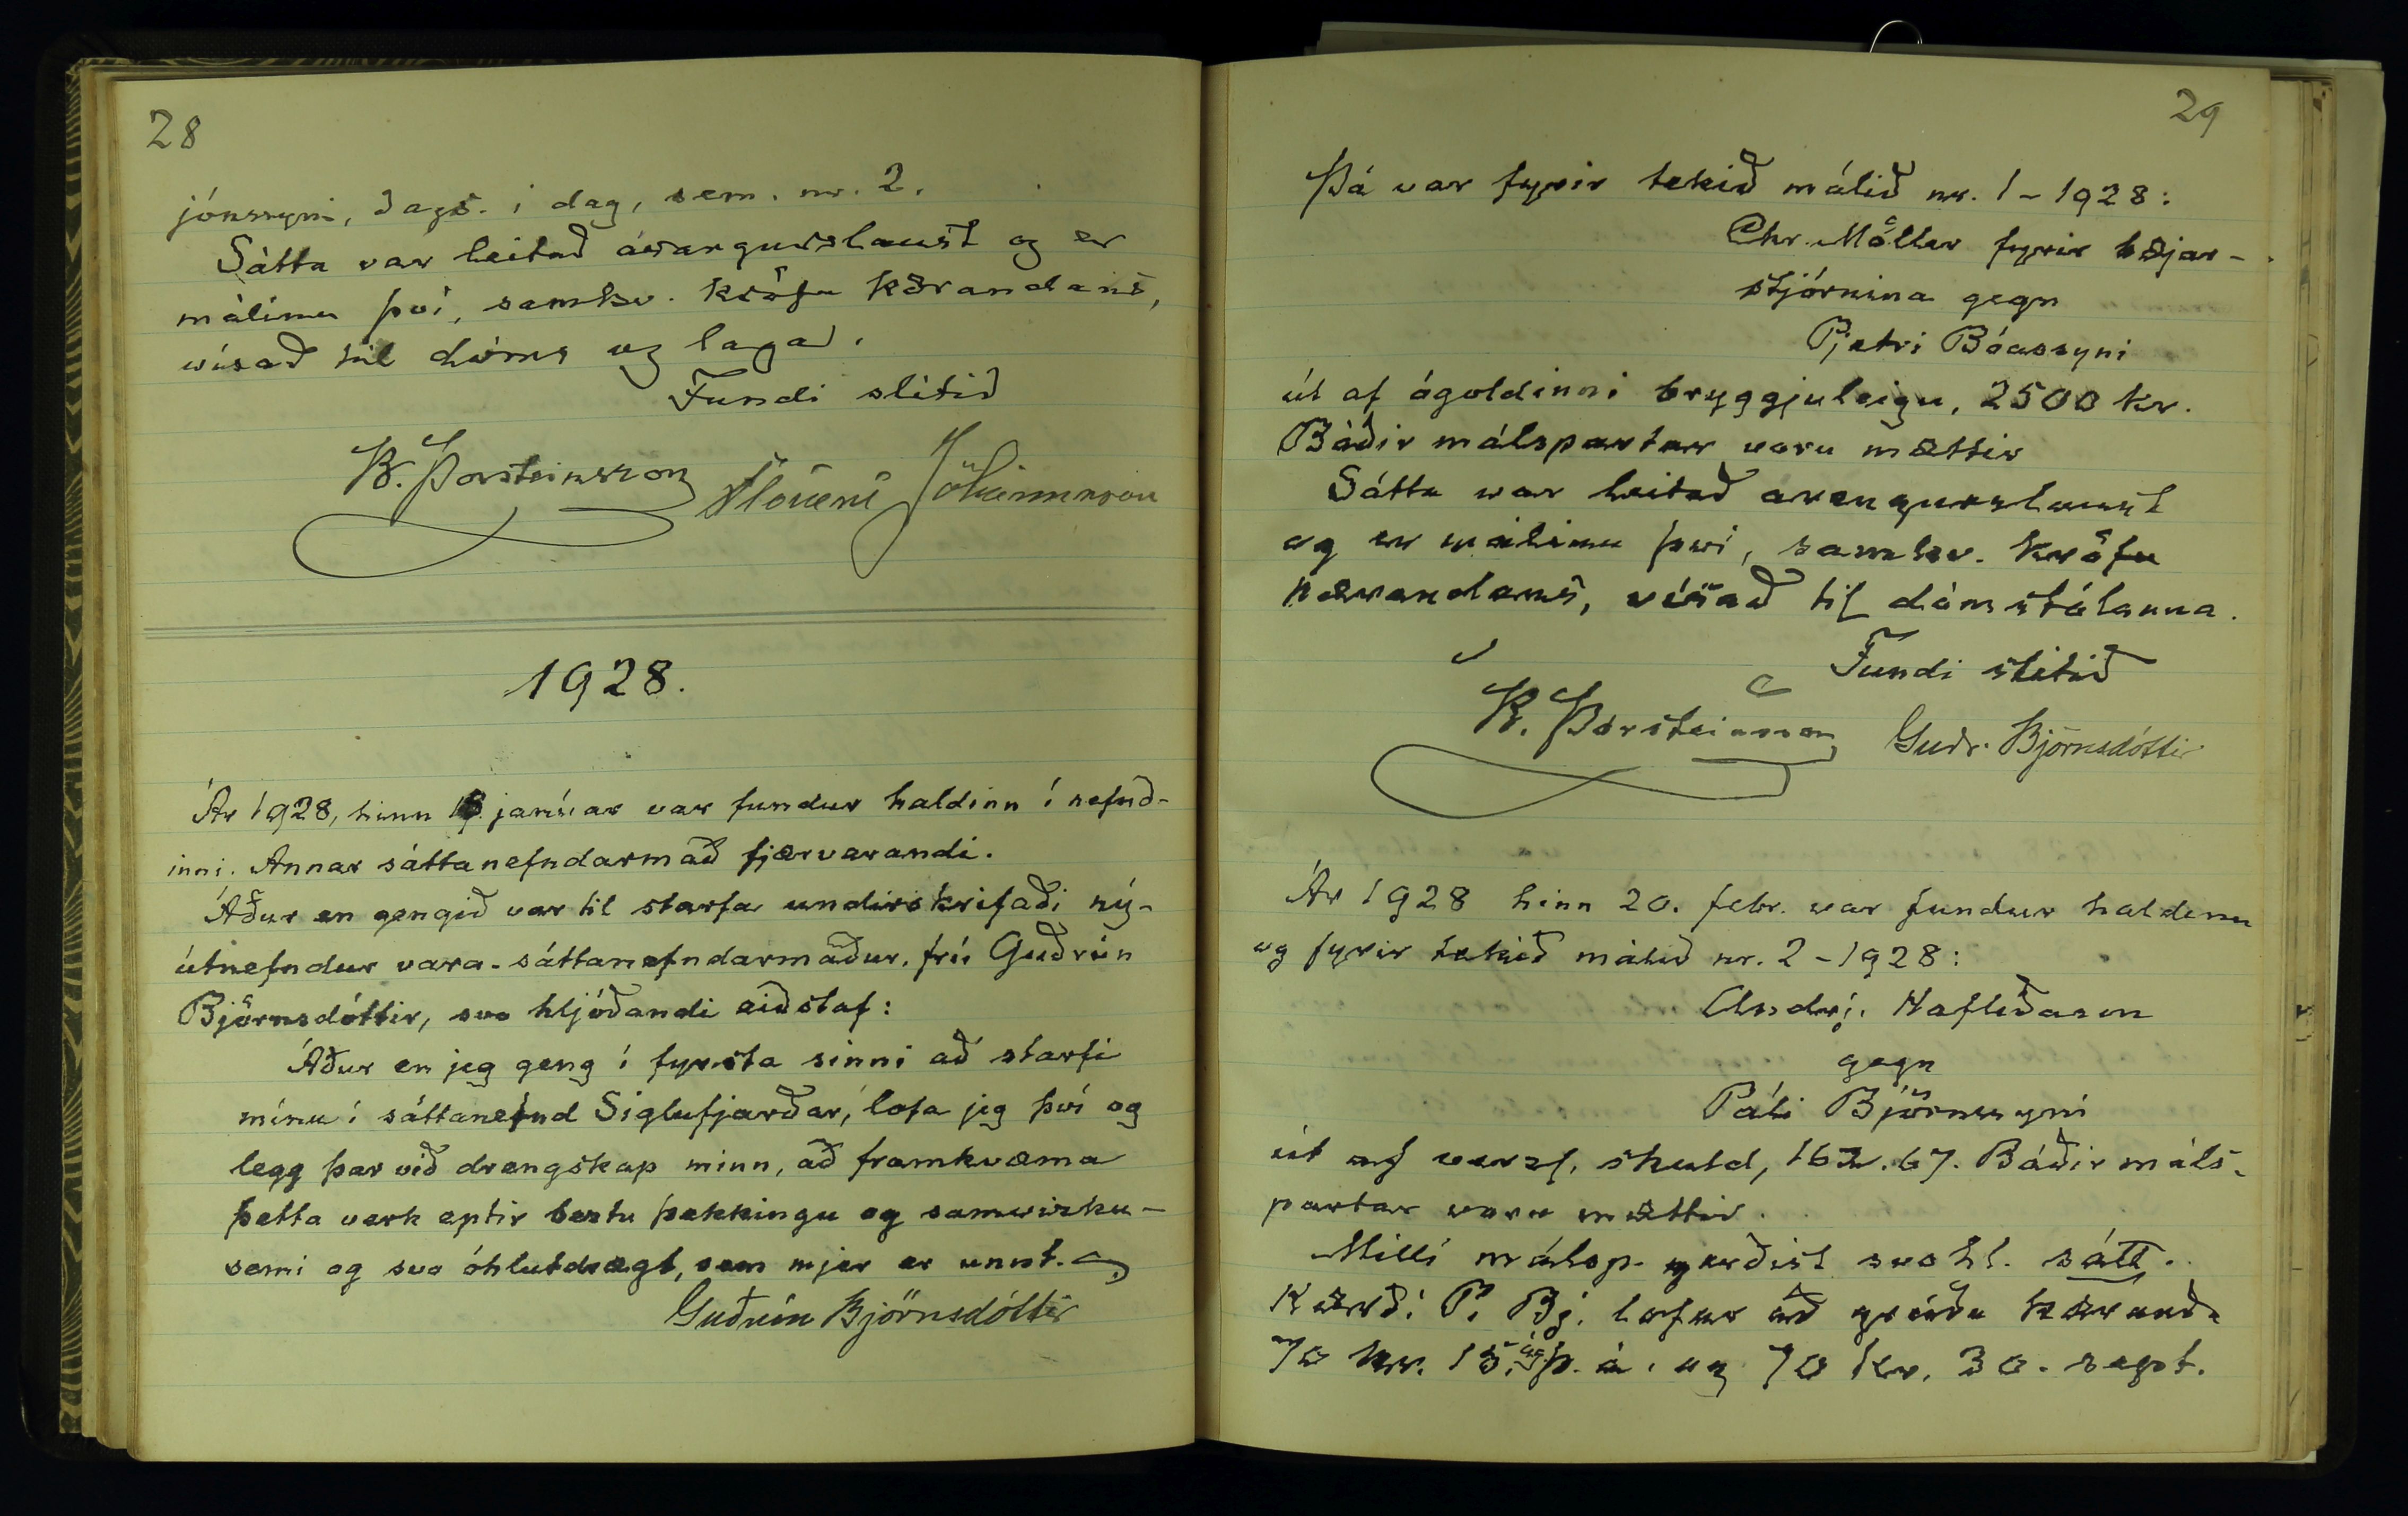 28
jónssyni, dags. í dag, sem nr. 2.
Sátta var leitað árangurslaust og er
málinu því, samkv. kröfu kærandans,
vísað til dóms og laga.
Fundi slitið
B. Þorsteinsson Flóvent Jóhannsson
1928.
Ár 1928, hinn janúar var fundur haldinn í nefnd-
inni. Annar sáttanefndarmað fjærverandi.
Áður en gengið var til starfa undirskrifaði ný-
útnefndur vara-sáttanefndarmaður, frú Guðrún
Björnsdóttir, svo hljóðandi eiðstaf:
Áður en jeg geng í fyrsta sinni að starfi
mínu í sáttanefnd Siglufjarðar, lofa jeg því og
legg þar við drengskap minn, að framkvæma
þetta verk eptir bestu þekkingu og samvizku-
semi og svo óhlutdrægt, sem mjer er unnt.
Guðrún Björnsdóttir
29
Þá var fyrir tekið málið nr. 1-1928:
Chr. Möller fyrir bæjar-
stjórnina gegn
Pjetri Bóassyni
út af ógoldinni bryggjuleigu, 2500 kr.
Báðir málspartar voru mættir
Sátta var leitað árangurslaust
og er málinu því, samkv. kröfu
kærandans, vísað til dómstólanna.
Fundi slitið
B. Þorsteinsson Guðr. Björnsdóttir
Ár 1928 hinn 20. febr. var fundur haldinn
og fyrir tekið málið nr. 2-1928:
Hafliðason
gegn
Páli Björnssyni
út af verzl. skuld, 67. Báðir máls-
partar voru mættir.
Milli málsp. gerðist svohl. sátt.
Kærði P. Bj. lofar að greiða kæranda
70 kr. 15. þ. á. og 70 kr. 30. sept.